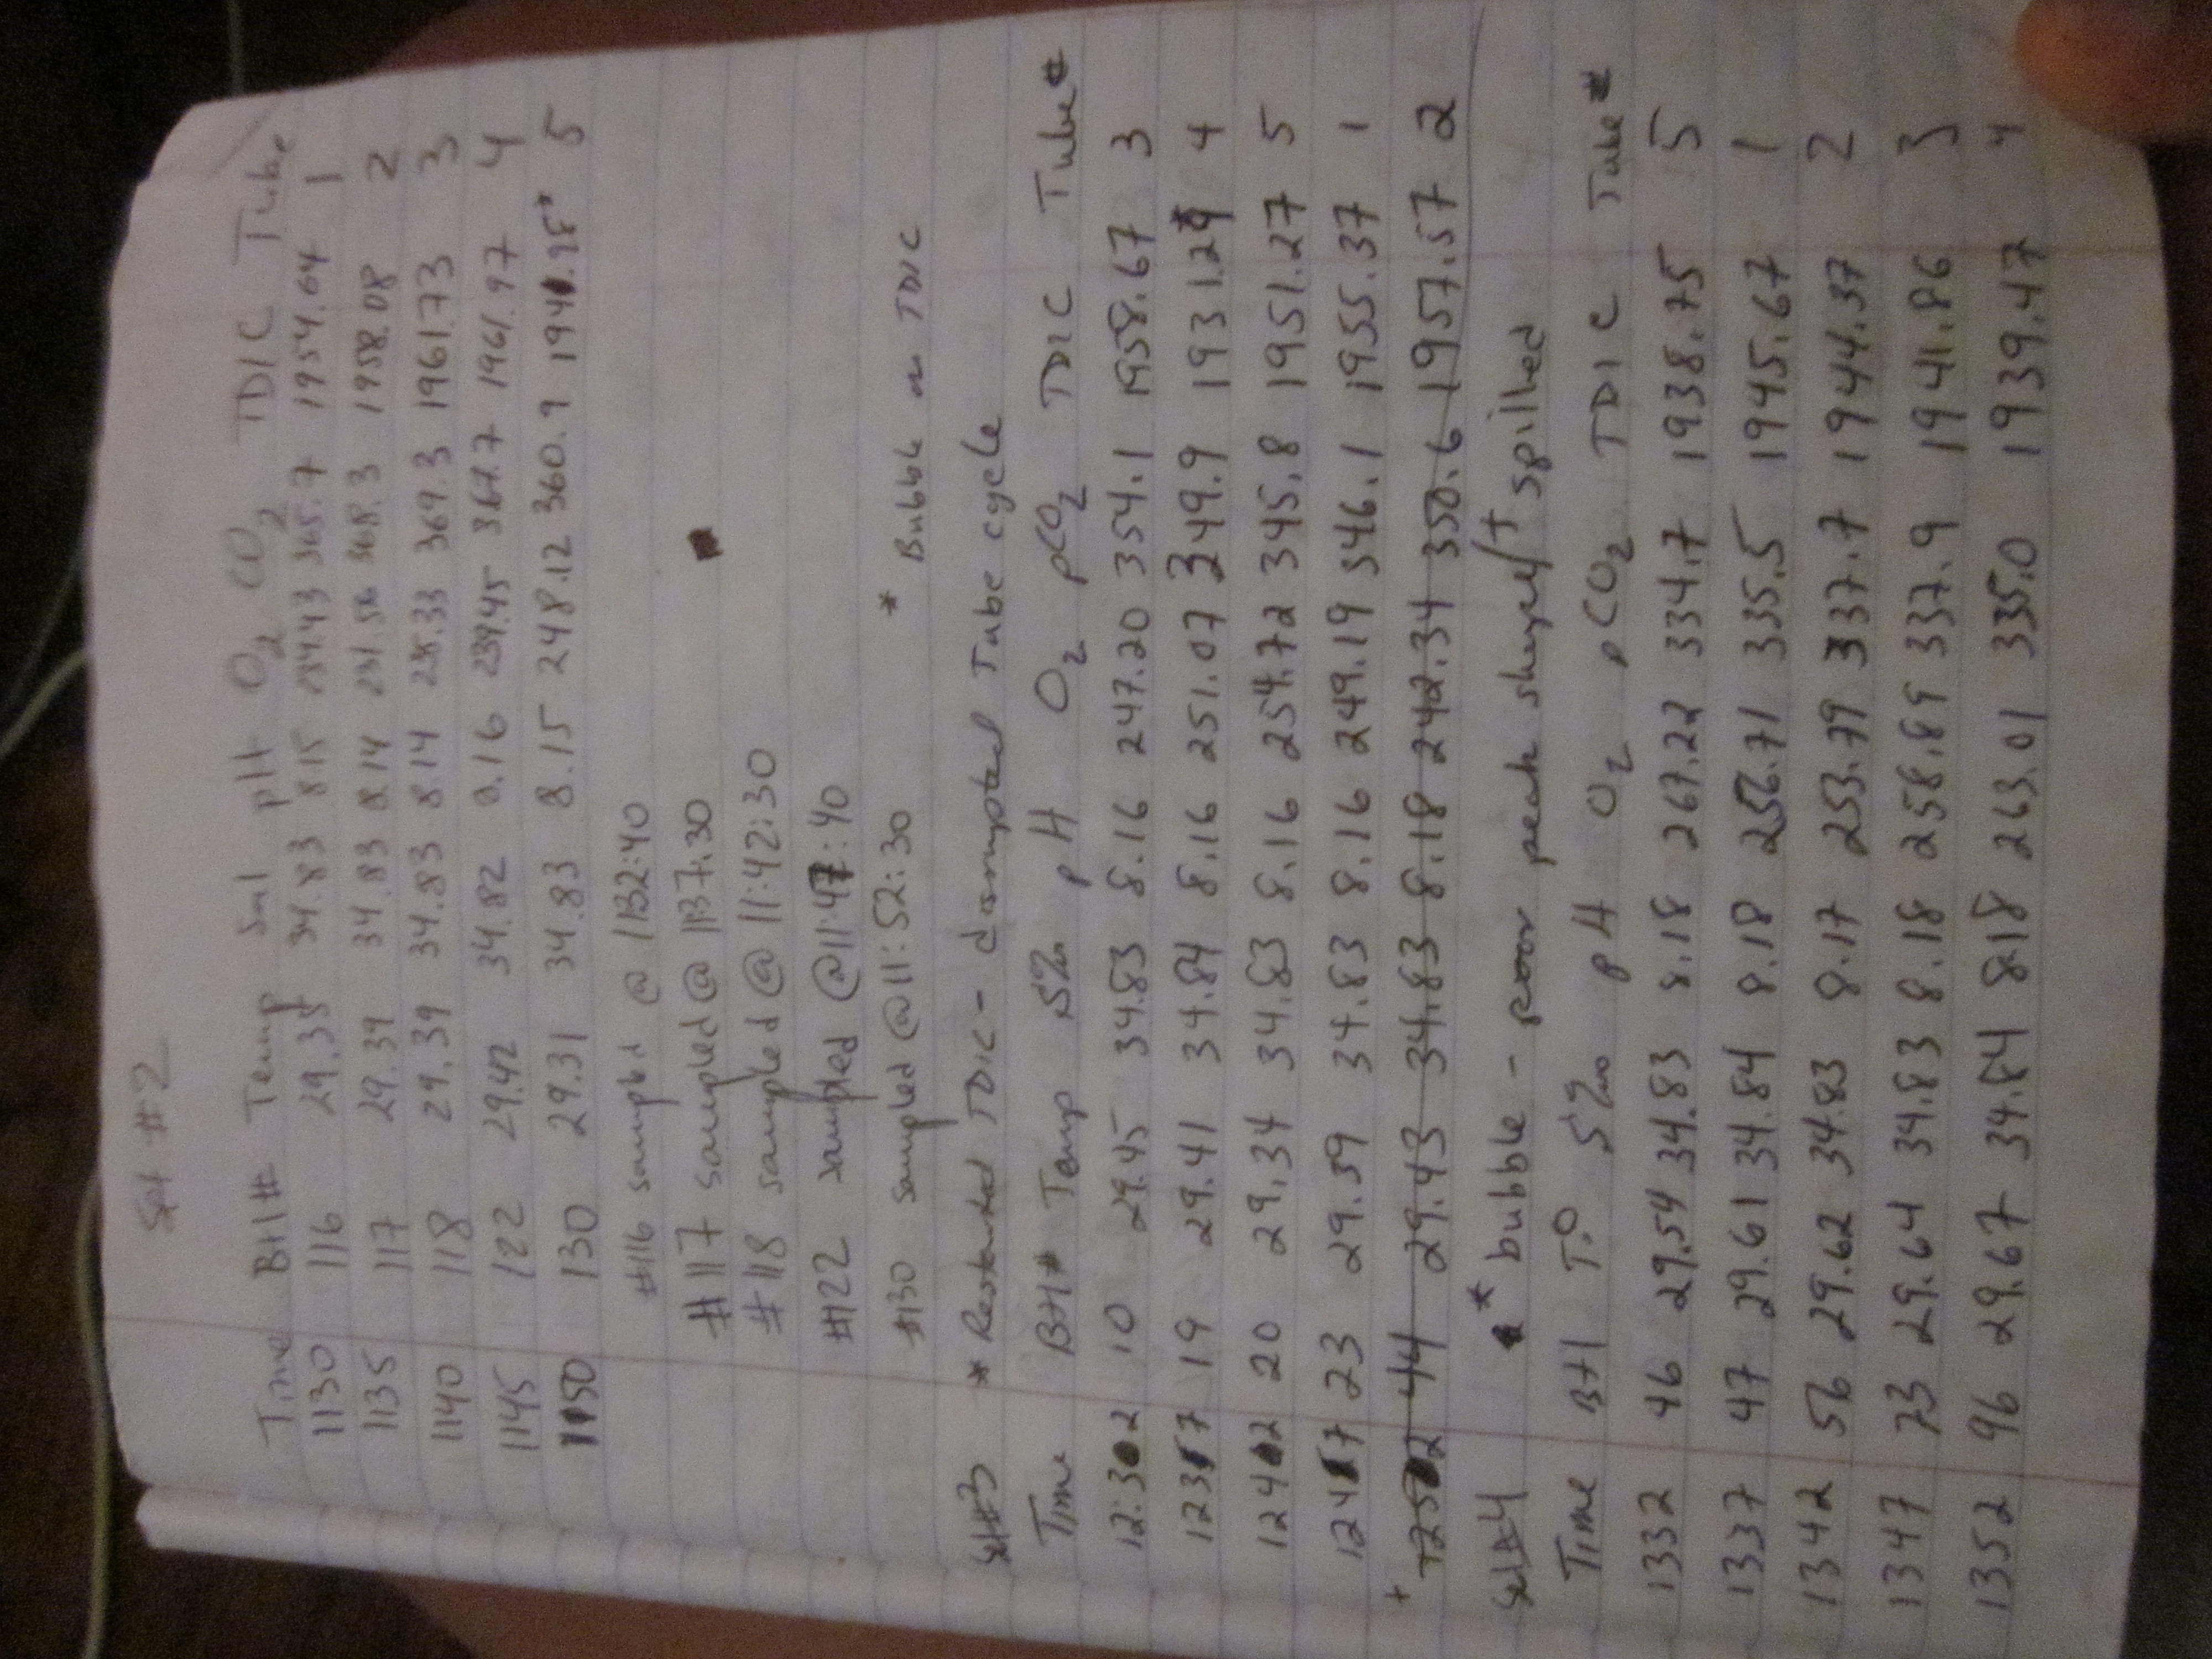 Set #2
Time BH# Temp Sal pH O2 CO2 TDIC Tube
1130 116 29.35 34.83 8.15 234.43 365.7 1954.64 1
1135 117 29.39 34.83 8.14 231.56 368.3 1958.08 2
1140 118 29.39 34.83 8.14 369.3 1961.73 3
1145 122 29.42 34.82 8.16 239.45 367.7 1961.97 4
1150 130 29.31 34.83 8.15 248.12 360.9 1941.98* 5
#116 sampled @ 1132:40
#117 sampled @ 1137:30
#118 sampled @ 11:42:30
#122 sampled @11:47:40
#130 sampled @11:52:30 * Bubble in TDIC
* Restarted TDIC - dampted Tube cycle
Set#3
Time BH# Temp S‰ pH O2 pCO2 TDIC Tube#
12:302 10 29.45 34.83 8.16 247.20 354.1 1958.67 3
12317 19 29.41 34.84 8.16 251.07 349.9 1931.29* 4
12402 20 29.34 34.83 8.16 254.72 345.8 1951.27 5
12417 23 29.39 34.83 8.16 249.19 346.1 1955.37 1
+ 12502 44 29.43 34.83 8.18 242.34 350.6 1957.57 2
Set#4 * bubble - poor peak shape/+ spilled
Time BH T° S‰ pH O2 pCO2 TDIC Tube#
1332 46 29.54 34.83 8.18 267.22 334.7 1938.75 5
1337 47 29.61 34.84 8.18 256.71 335.5 1945.67 1
1342 56 29.62 34.83 8.17 253.79 337.7 1944.37 2
1347 73 29.64 34.83 8.18 258.89 337.9 1941.86 3
1352 96 29.67 34.84 8.18 263.01 335.0 1939.47 4